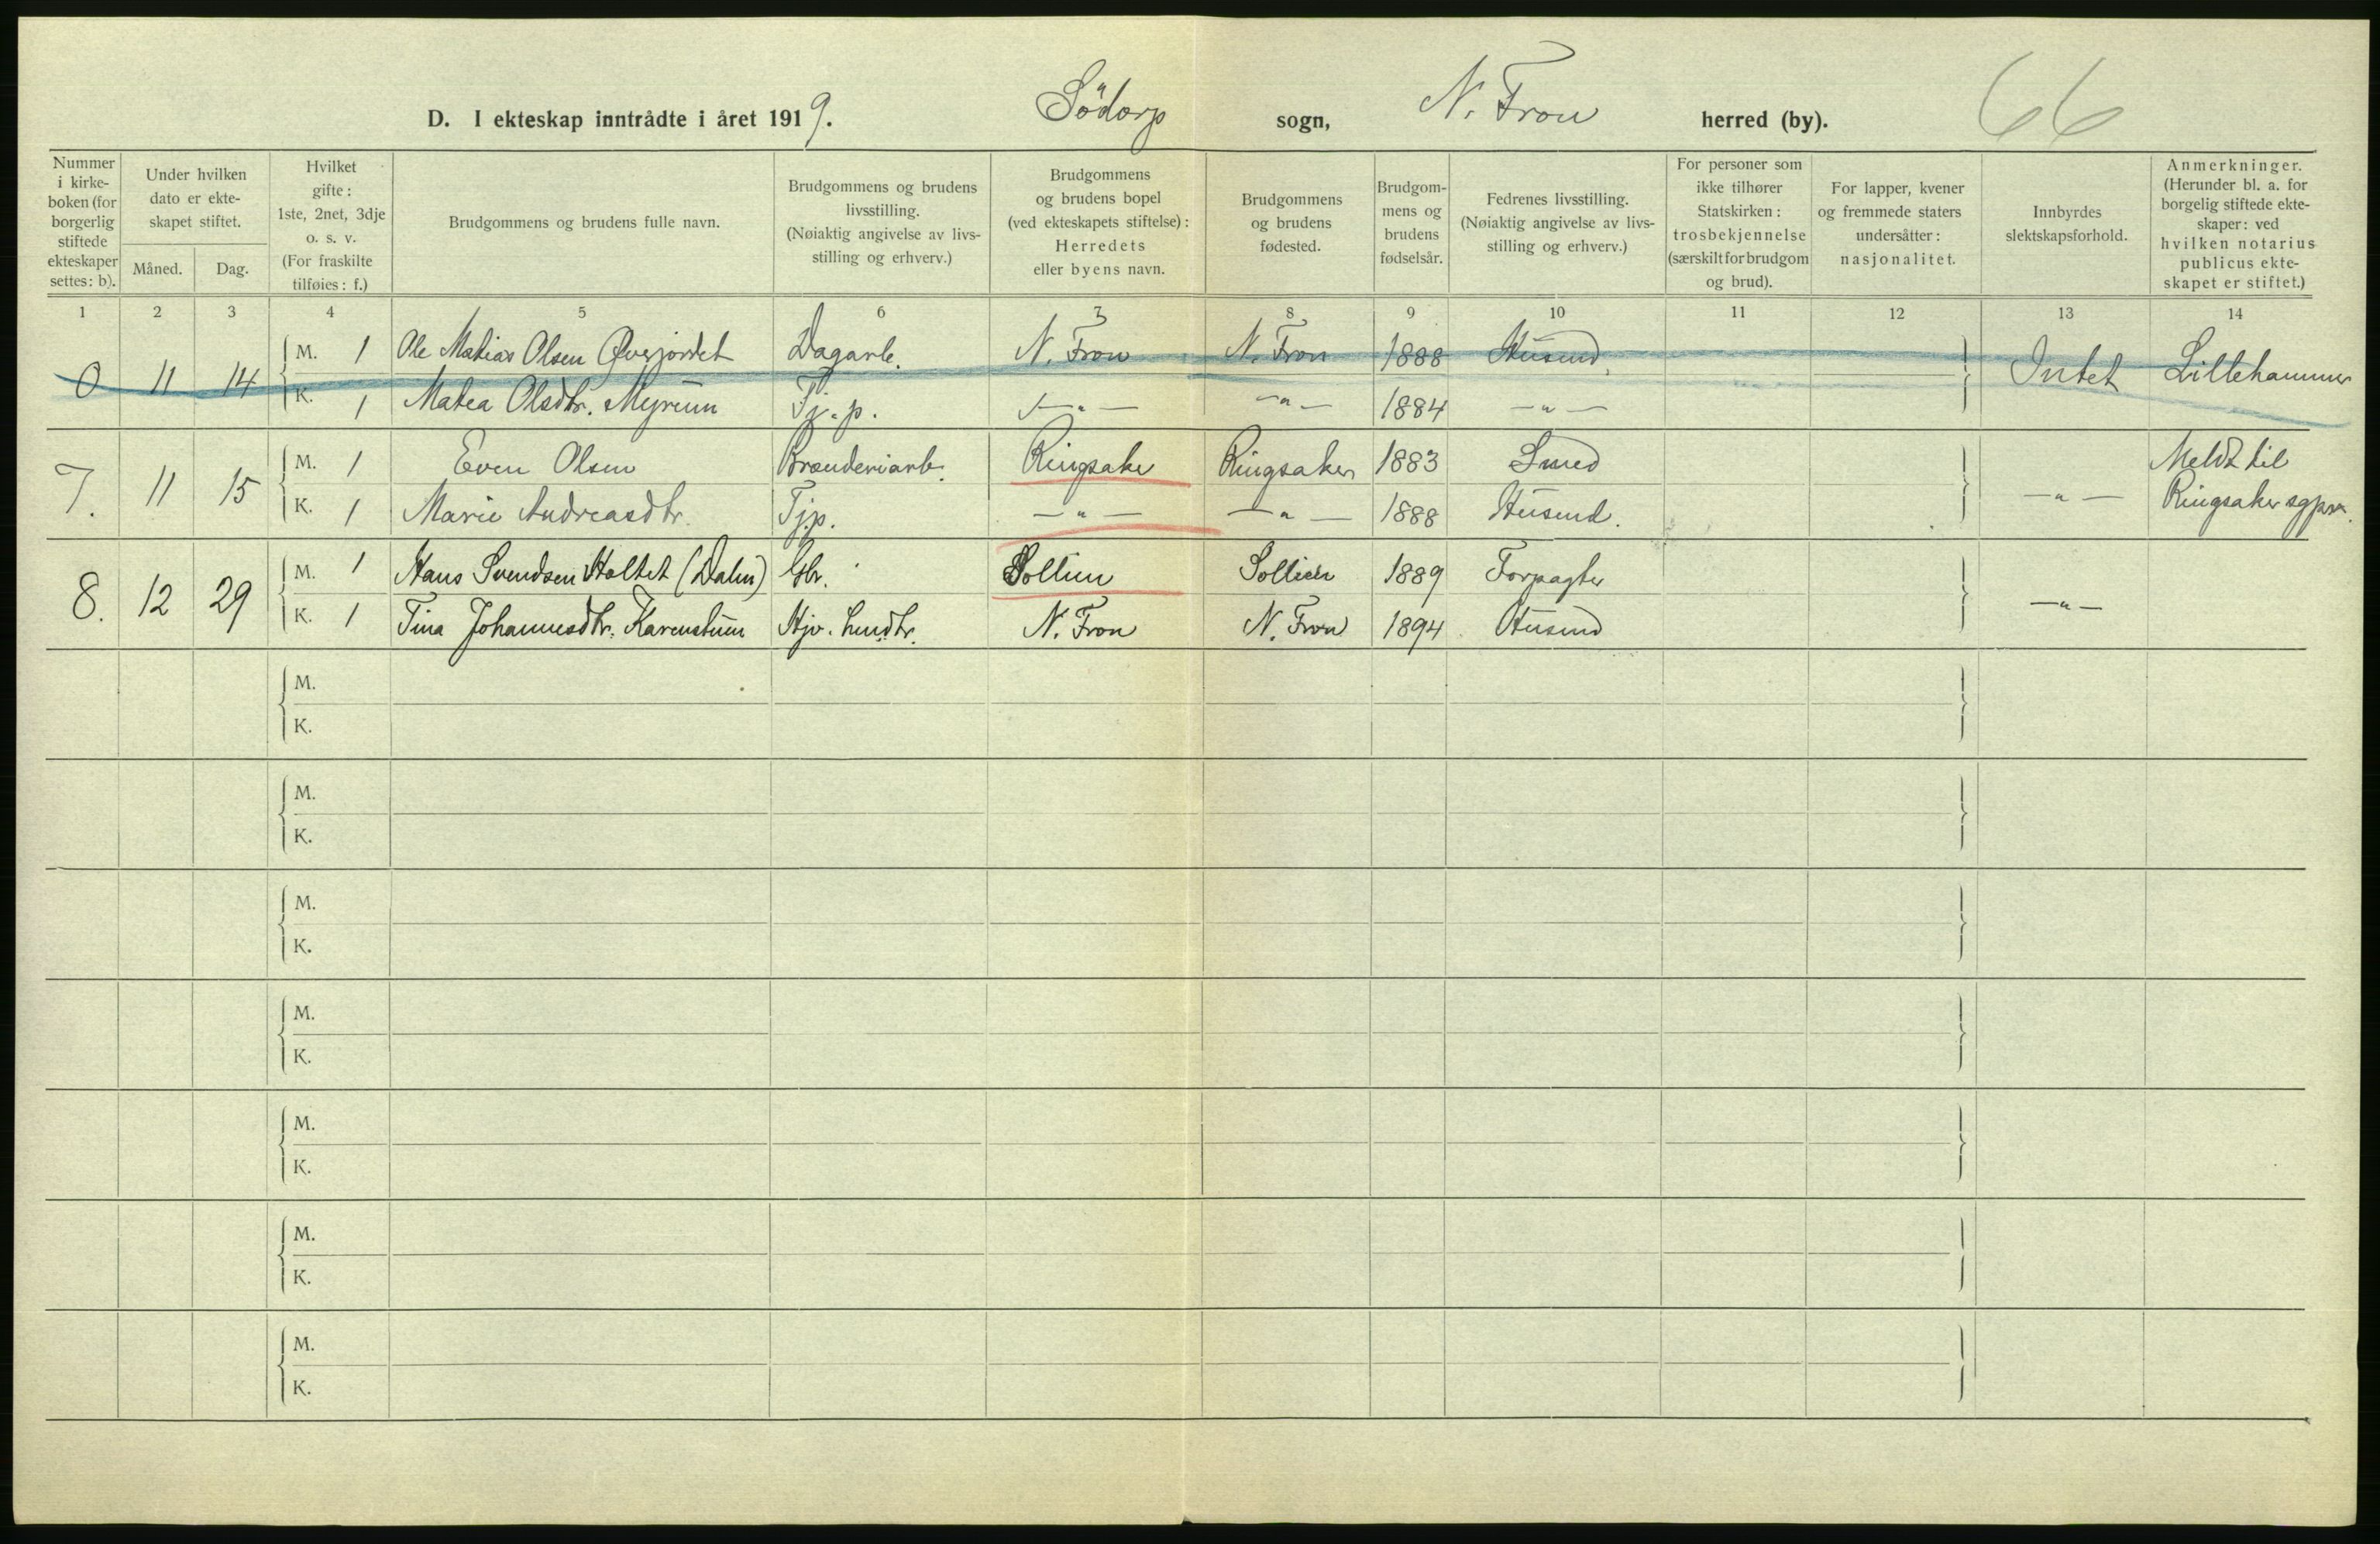 D. I ekteskap inntrådte i året 1919. Södorp sogn, N. Fron herred (by). 66
Nummer i kirke-boken (for borgerlig stiftede ekteskaper settes: b).
Under hvilken dato er ekte-skapet stiftet.
Måned. Dag.
Hvilket gifte: 1ste, 2net, 3dje o. s. v. (For fraskilte tilføies: f.)
Brudgommens og brudens fulle navn.
Brudgommens og brudens livsstilling. (Nøiaktig angivelse av livs-stilling og erhverv.)
Brudgommens og brudens bopel (ved ekteskapets stiftelse): Herredets eller byens navn.
Brudgommens og brudens fødested.
Brudgom-mens og brudens fødselsår.
Fedrenes livsstilling. (Nøiaktig angivelse av livs-stilling og erhverv.)
For personer som ikke tilhører Statskirken: trosbekjennelse (særskilt for brudgom og brud).
For lapper, kvener og fremmede staters undersåtter: nasjonalitet.
Innbyrdes slektskapsforhold.
Anmerkninger. (Herunder bl. a. for borgelig stiftede ekte-skaper: ved hvilken notarius publicus ekte-skapet er stiftet.)
1 2 3 4 5 6 7 8 9 10 11 12 13 14
0 11 14 M. 1 Ole Matias Olsen Øverjordet Dagarb. N. Fron N. Fron 1888 Husmd. Intet Lillehammer
K. 1 Matea Olsdtr. Myrum Tj.p. — " — — " — 1884 — " —
7. 11 15 M. 1 Even Olsen Brænderiarb. Ringsaker Ringsaker 1883 Smed — " — Meldt til
K. 1 Marie Andreasdtr. Tjp. — " — — " — 1888 Husmd. Ringsaker sgpr.
8. 12 29 M. 1 Hans Svendsen Holtet (Dalen) Gbr. Sollien Sollien 1889 Forpagter — " —
K. 1 Tina Johannesdtr. Karenstuen Hjv. N. Fron N. Fron 1894 Husmd
M.
K.
M.
K.
M.
K.
M.
K.
M.
K.
M.
K.
M.
K.